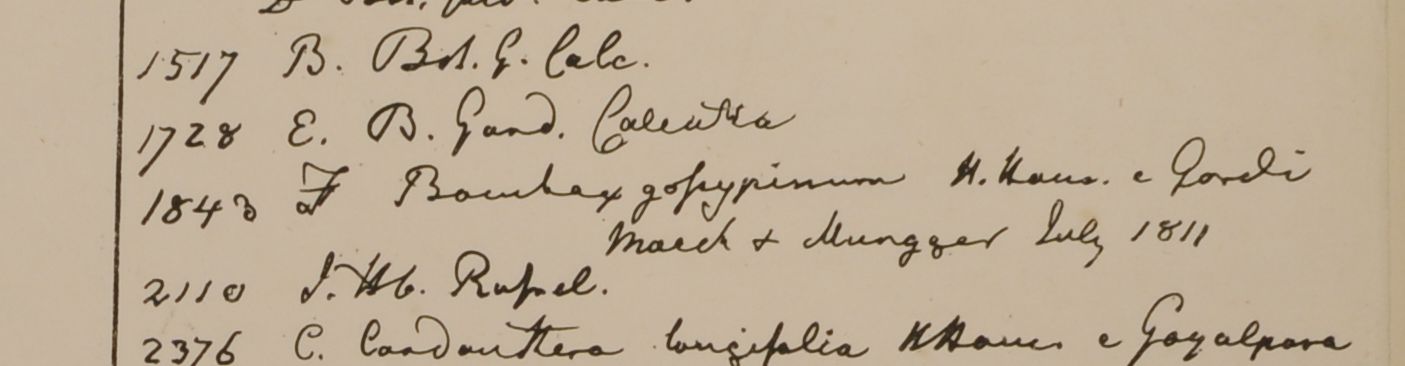 1517 B. Bot. G. Calc.
1728 E. B. Gard. Calcutta
1843 F Bombax gossypinum H. Ham. e Gongachora
March & Mungger July 1811
2110 I. Hb. Russel.
2376 C. Cardanthera longifolia H Ham. e Goyalpara